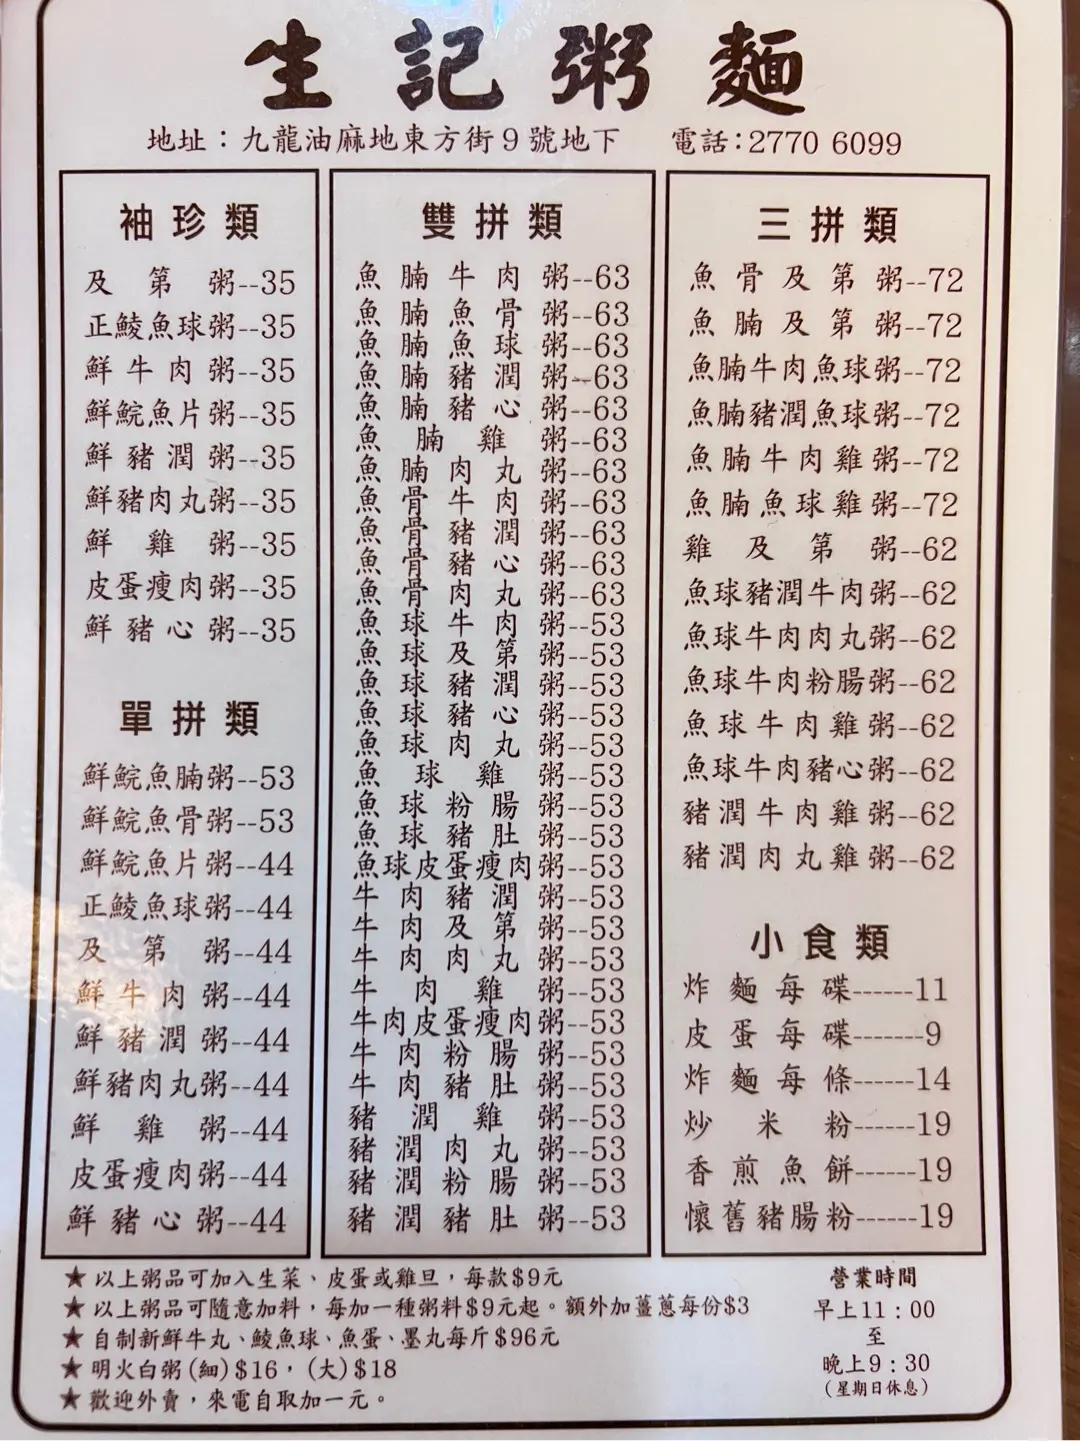 生記粥麵
地址：九龍油麻地東方街9號地下　電話：2770 6099
袖珍類
及第粥--35
正鯪魚球粥--35
鮮牛肉粥--35
鮮鯇魚片粥--35
鮮豬潤粥--35
鮮豬肉丸粥--35
鮮雞粥--35
皮蛋瘦肉粥--35
鮮豬心粥--35
單拼類
鮮鯇魚腩粥--53
鮮鯇魚骨粥--53
鮮鯇魚片粥--44
正鯪魚球粥--44
及第粥--44
鮮牛肉粥--44
鮮豬潤粥--44
鮮豬肉丸粥--44
鮮雞粥--44
皮蛋瘦肉粥--44
鮮豬心粥--44
雙拼類
魚腩牛肉粥--63
魚腩魚骨粥--63
魚腩魚球粥--63
魚腩豬潤粥--63
魚腩豬心粥--63
魚腩雞粥--63
魚腩肉丸粥--63
魚骨牛肉粥--63
魚骨豬潤粥--63
魚骨豬心粥--63
魚骨肉丸粥--63
魚球牛肉粥--53
魚球及第粥--53
魚球豬潤粥--53
魚球豬心粥--53
魚球肉丸粥--53
魚球雞粥--53
魚球粉腸粥--53
魚球豬肚粥--53
魚球皮蛋瘦肉粥--53
牛肉豬潤粥--53
牛肉及第粥--53
牛肉肉丸粥--53
牛肉雞粥--53
牛肉皮蛋瘦肉粥--53
牛肉粉腸粥--53
牛肉豬肚粥--53
豬潤雞粥--53
豬潤肉丸粥--53
豬潤粉腸粥--53
豬潤豬肚粥--53
三拼類
魚骨及第粥--72
魚腩及第粥--72
魚腩牛肉魚球粥--72
魚腩豬潤魚球粥--72
魚腩牛肉雞粥--72
魚腩魚球雞粥--72
雞及第粥--62
魚球豬潤牛肉粥--62
魚球牛肉肉丸粥--62
魚球牛肉粉腸粥--62
魚球牛肉雞粥--62
魚球牛肉豬心粥--62
豬潤牛肉雞粥--62
豬潤肉丸雞粥--62
小食類
炸麵每碟------11
皮蛋每碟-------9
炸麵每條------14
炒米粉------19
香煎魚餅------19
懷舊豬腸粉------19
★以上粥品可加入生菜、皮蛋或雞旦，每款$9元
★以上粥品可隨意加料，每加一種粥料$9元起。額外加薑蔥每份$3
★自制新鮮牛丸、鯪魚球、魚蛋、墨丸每斤$96元
★明火白粥(細)$16，(大)$18
★歡迎外賣，來電自取加一元。
營業時間
早上11：00
至
晚上9：30
（星期日休息）